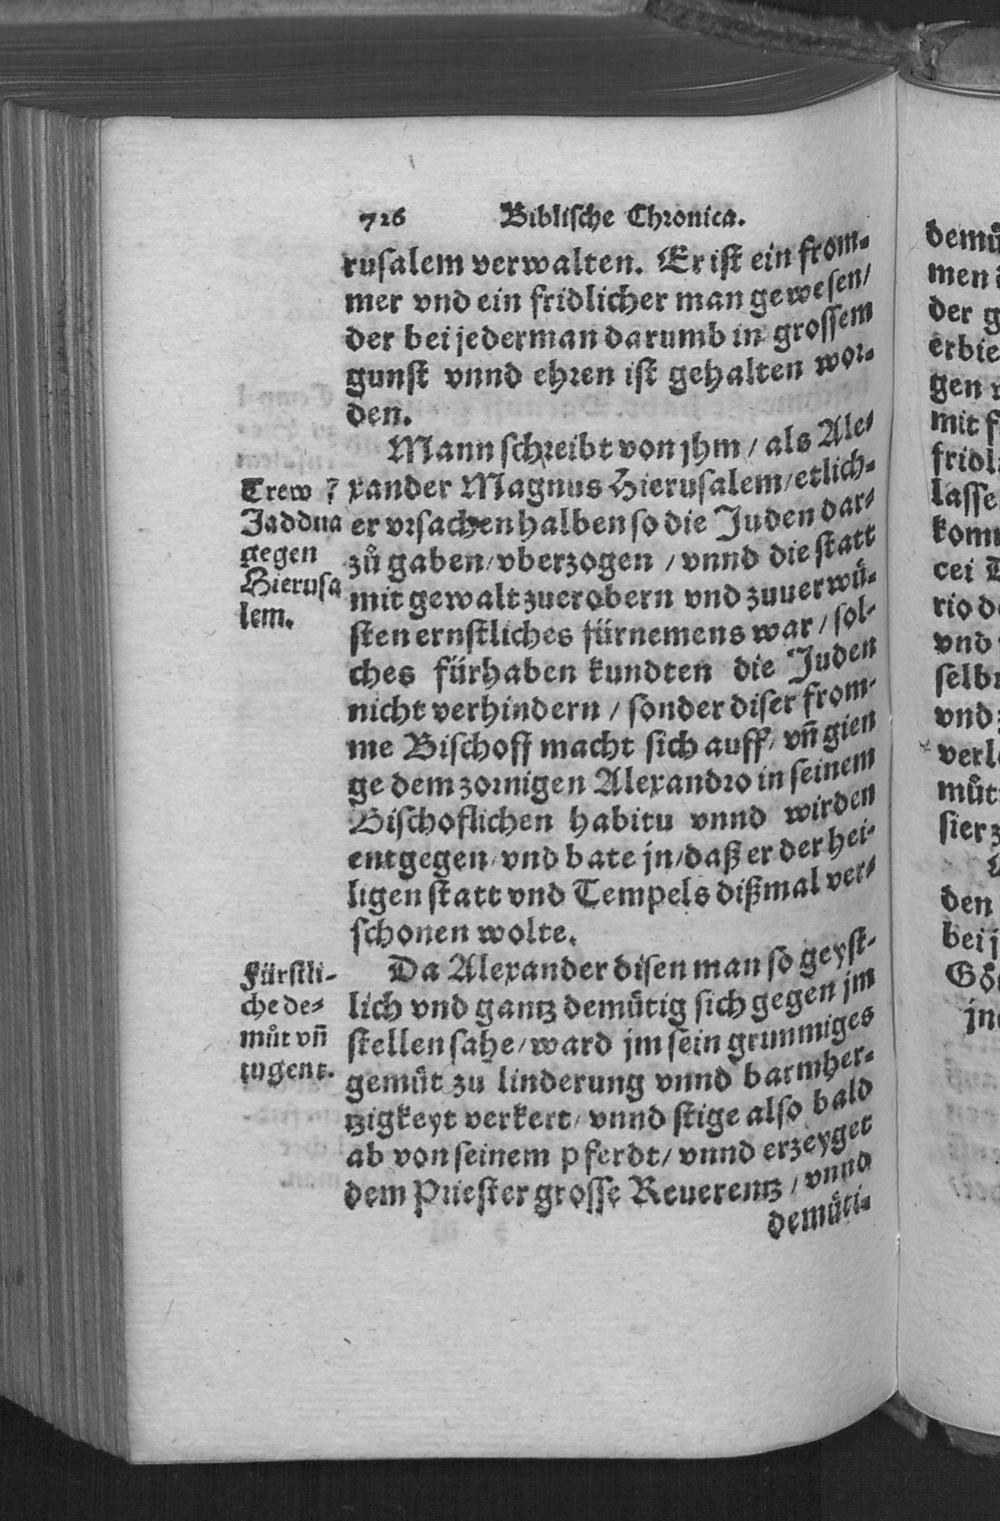 726 Biblische Chronica.
rusalem verwalten. Er ist ein from-
mer vnd ein fridlicher man gewesen/
der bei jederman darumb in grossem
gunst vnnd ehren ist gehalten wor-
den.
Mann schreibt von jhm / als Ale-
xander Magnus Hierusalem/etlich-
er vrsachen halben so die Juden dar-
zů gaben/vberzogen / vnnd die statt
mit gewalt zuerobern vnd zuuerwů-
sten ernstliches fürnemens war / sol-
ches fürhaben kundten die Juden
nicht verhindern / sonder diser from-
me Bischoff macht sich auff/ vñ gien
ge dem zornigen Alexandro in seinem
Bischoflichen habitu vnnd wirden
entgegen/vnd bate jn/daß er der hei-
ligen statt vnd Tempels dißmal ver-
schonen wolte.
Da Alexander disen man so geyst-
lich vnd gantz demůtig sich gegen jm
stellen sahe/ward jm sein grimmiges
gemůt zu linderung vnnd barmher-
tzigkeyt verkert/ vnnd stige also bald
ab von seinem pferdt/ vnnd erzeyget
dem Priester grosse Reuerentz / vnnd
demůti-
Trew ?
Jaddua
gegen
Hierusa
lem.
Fürstli-
che de-
můt vñ
tugent.
demů
men
der g
erbie
gen
mit f
fridl
lasse
kom
cei
rio d
vnd
selb
vnd
verl
můt
sier z
den
bei j
Gö
jn